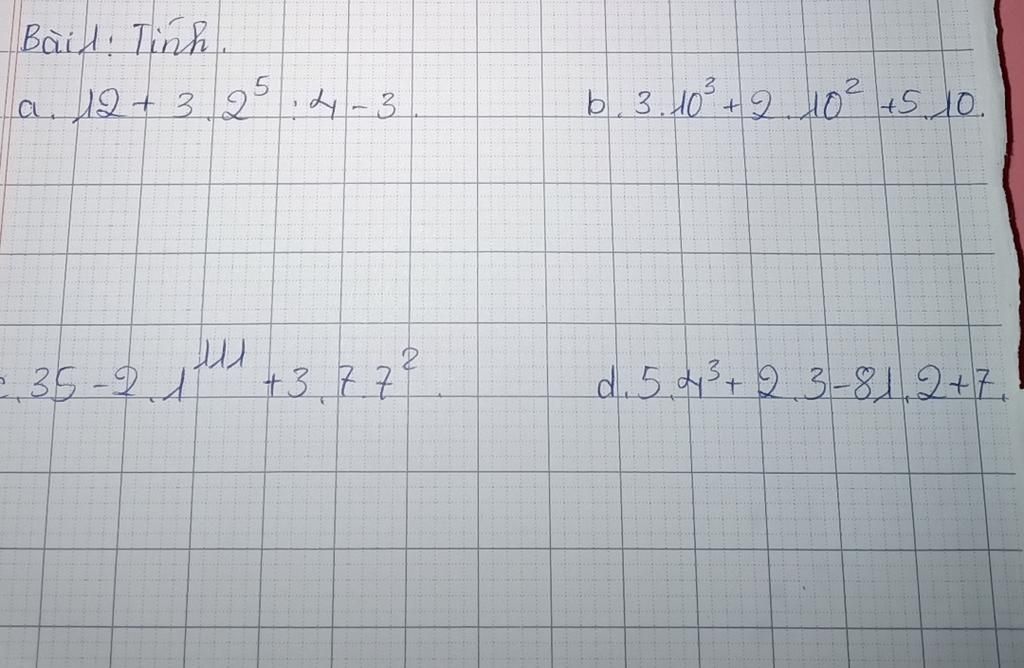 Bài 1: Tính.
a. 12 + 3. 2⁵ : 4 - 3. b. 3.10³ + 2. 10² + 5. 10.
c. 35 - 2. 1¹¹¹ + 3. 7. 7². d. 5. 4³ + 2. 3 - 81. 2 + 7.